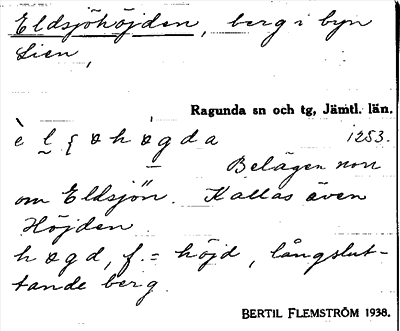 Eldsjöhöjden, berg i byn
Lien,
Ragunda sn och tg, Jämtl. län.
1253.
Belägen norr
om Eldsjön. Kallas även
Höjden.
h ɵ g d, f. = höjd, långslut-
tande berg.
BERTIL FLEMSTRÖM 1938.